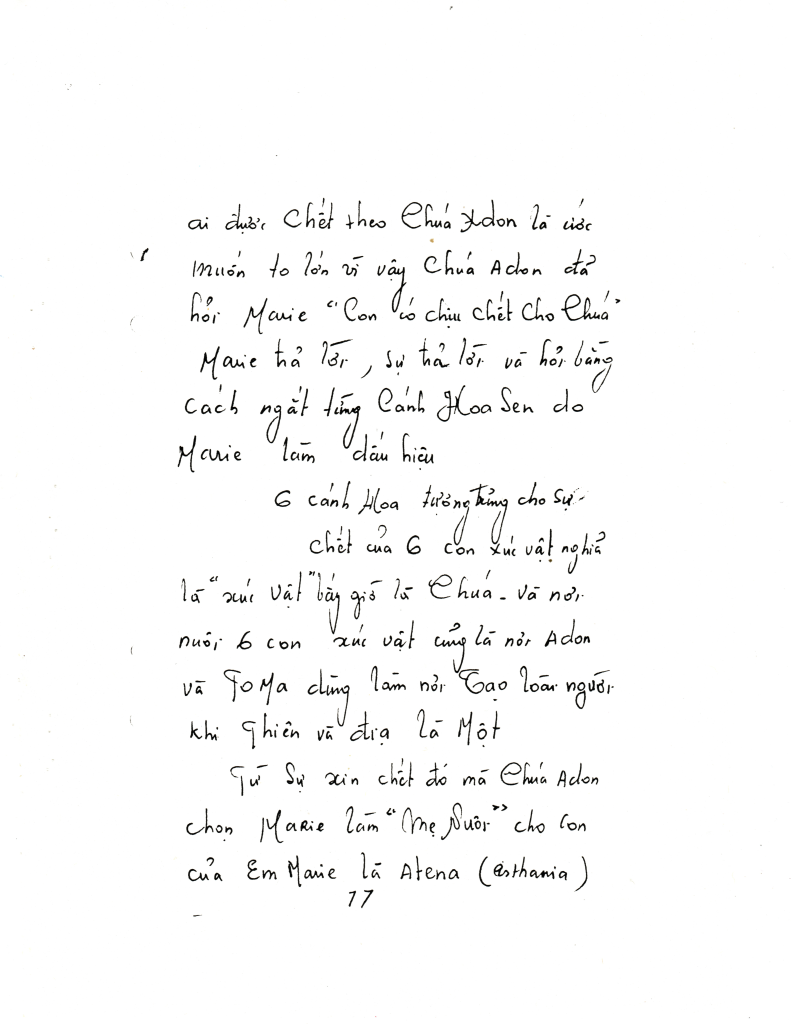 ai được Chết theo Chúa Adon là ước
muốn to lớn vì vậy Chúa Adon đả
hỏi Marie "Con có chịu chết cho Chúa"
Marie trả lời, sự trả lời và hỏi bằng
cách ngắt từng Cánh Hoa Sen do
Marie làm dấu hiệu
6 cánh Hoa tượng trưng cho sự
chết của 6 con xúc vật nghỉa
là "xúc vật" bấy giờ là Chúa - và nơi
nuôi 6 con xúc vật củng là nơi Adon
và ToMa dùng làm nơi Tạo loài người
khi Thiên và địa là Một
Từ Sự xin chết đó mà Chúa Adon
chọn Marie làm "Mẹ Nuôi" cho con
của Em Marie là Atena (Esthania)
17